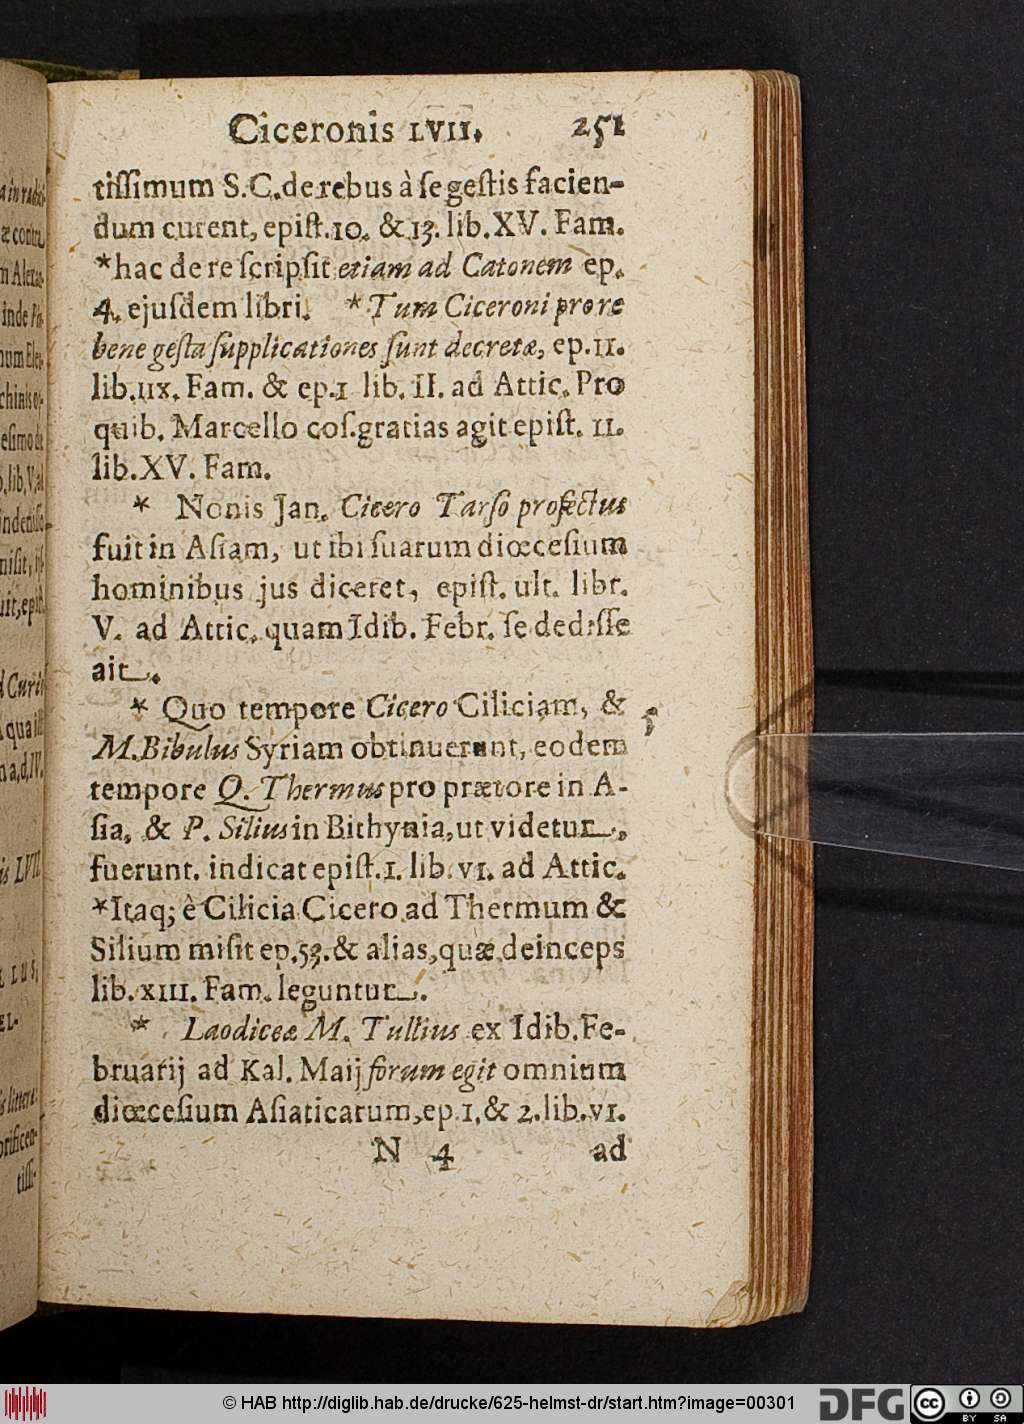 Ciceronis LVII. 251
tissimum S.C. de rebus à se gestis facien-
dum curent, epist. 10. & 13. lib. XV. Fam.
*hac de re scripsit etiam ad Catonem ep.
4. ejusdem libri. * Tum Ciceroni pro re
bene gesta supplicationes sunt decretæ, ep. 11.
lib. IIX. Fam. & ep. 1 lib. II. ad Attic. Pro
quib. Marcello cos. gratias agit epist. 11.
lib. XV. Fam.
* Nonis Jan. Cicero Tarso profectus
fuit in Asiam, ut ibi suarum diœcesium
hominibus jus diceret, epist. ult. libr.
V. ad Attic. quam Idib. Febr. se dedisse
ait.
* Quo tempore Cicero Ciliciam, &
M. Bibulus Syriam obtinuerunt, eodem
tempore Q. Thermus pro prætore in A-
sia, & P. Silius in Bithynia, ut videtur,
fuerunt. indicat epist. 1. lib. VI. ad Attic.
*Itaq; è Cilicia Cicero ad Thermum &
Silium misit ep. 53. & alias, quæ deinceps
lib. XIII. Fam. leguntur.
* Laodiceæ M. Tullius ex Idib. Fe-
bruarij ad Kal. Maij forum egit omnium
diœcesium Asiaticarum, ep. 1, & 2. lib. VI.
N 4 ad
© HAB http://diglib.hab.de/drucke/625-helmst-dr/start.htm?image=00301
DFG
cc BY SA